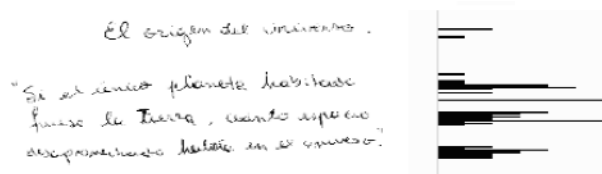 El origen del universo.
"Si el único planeta habitado
fuese la Tierra, cuanto espacio
desaprovechado habría en el universo."